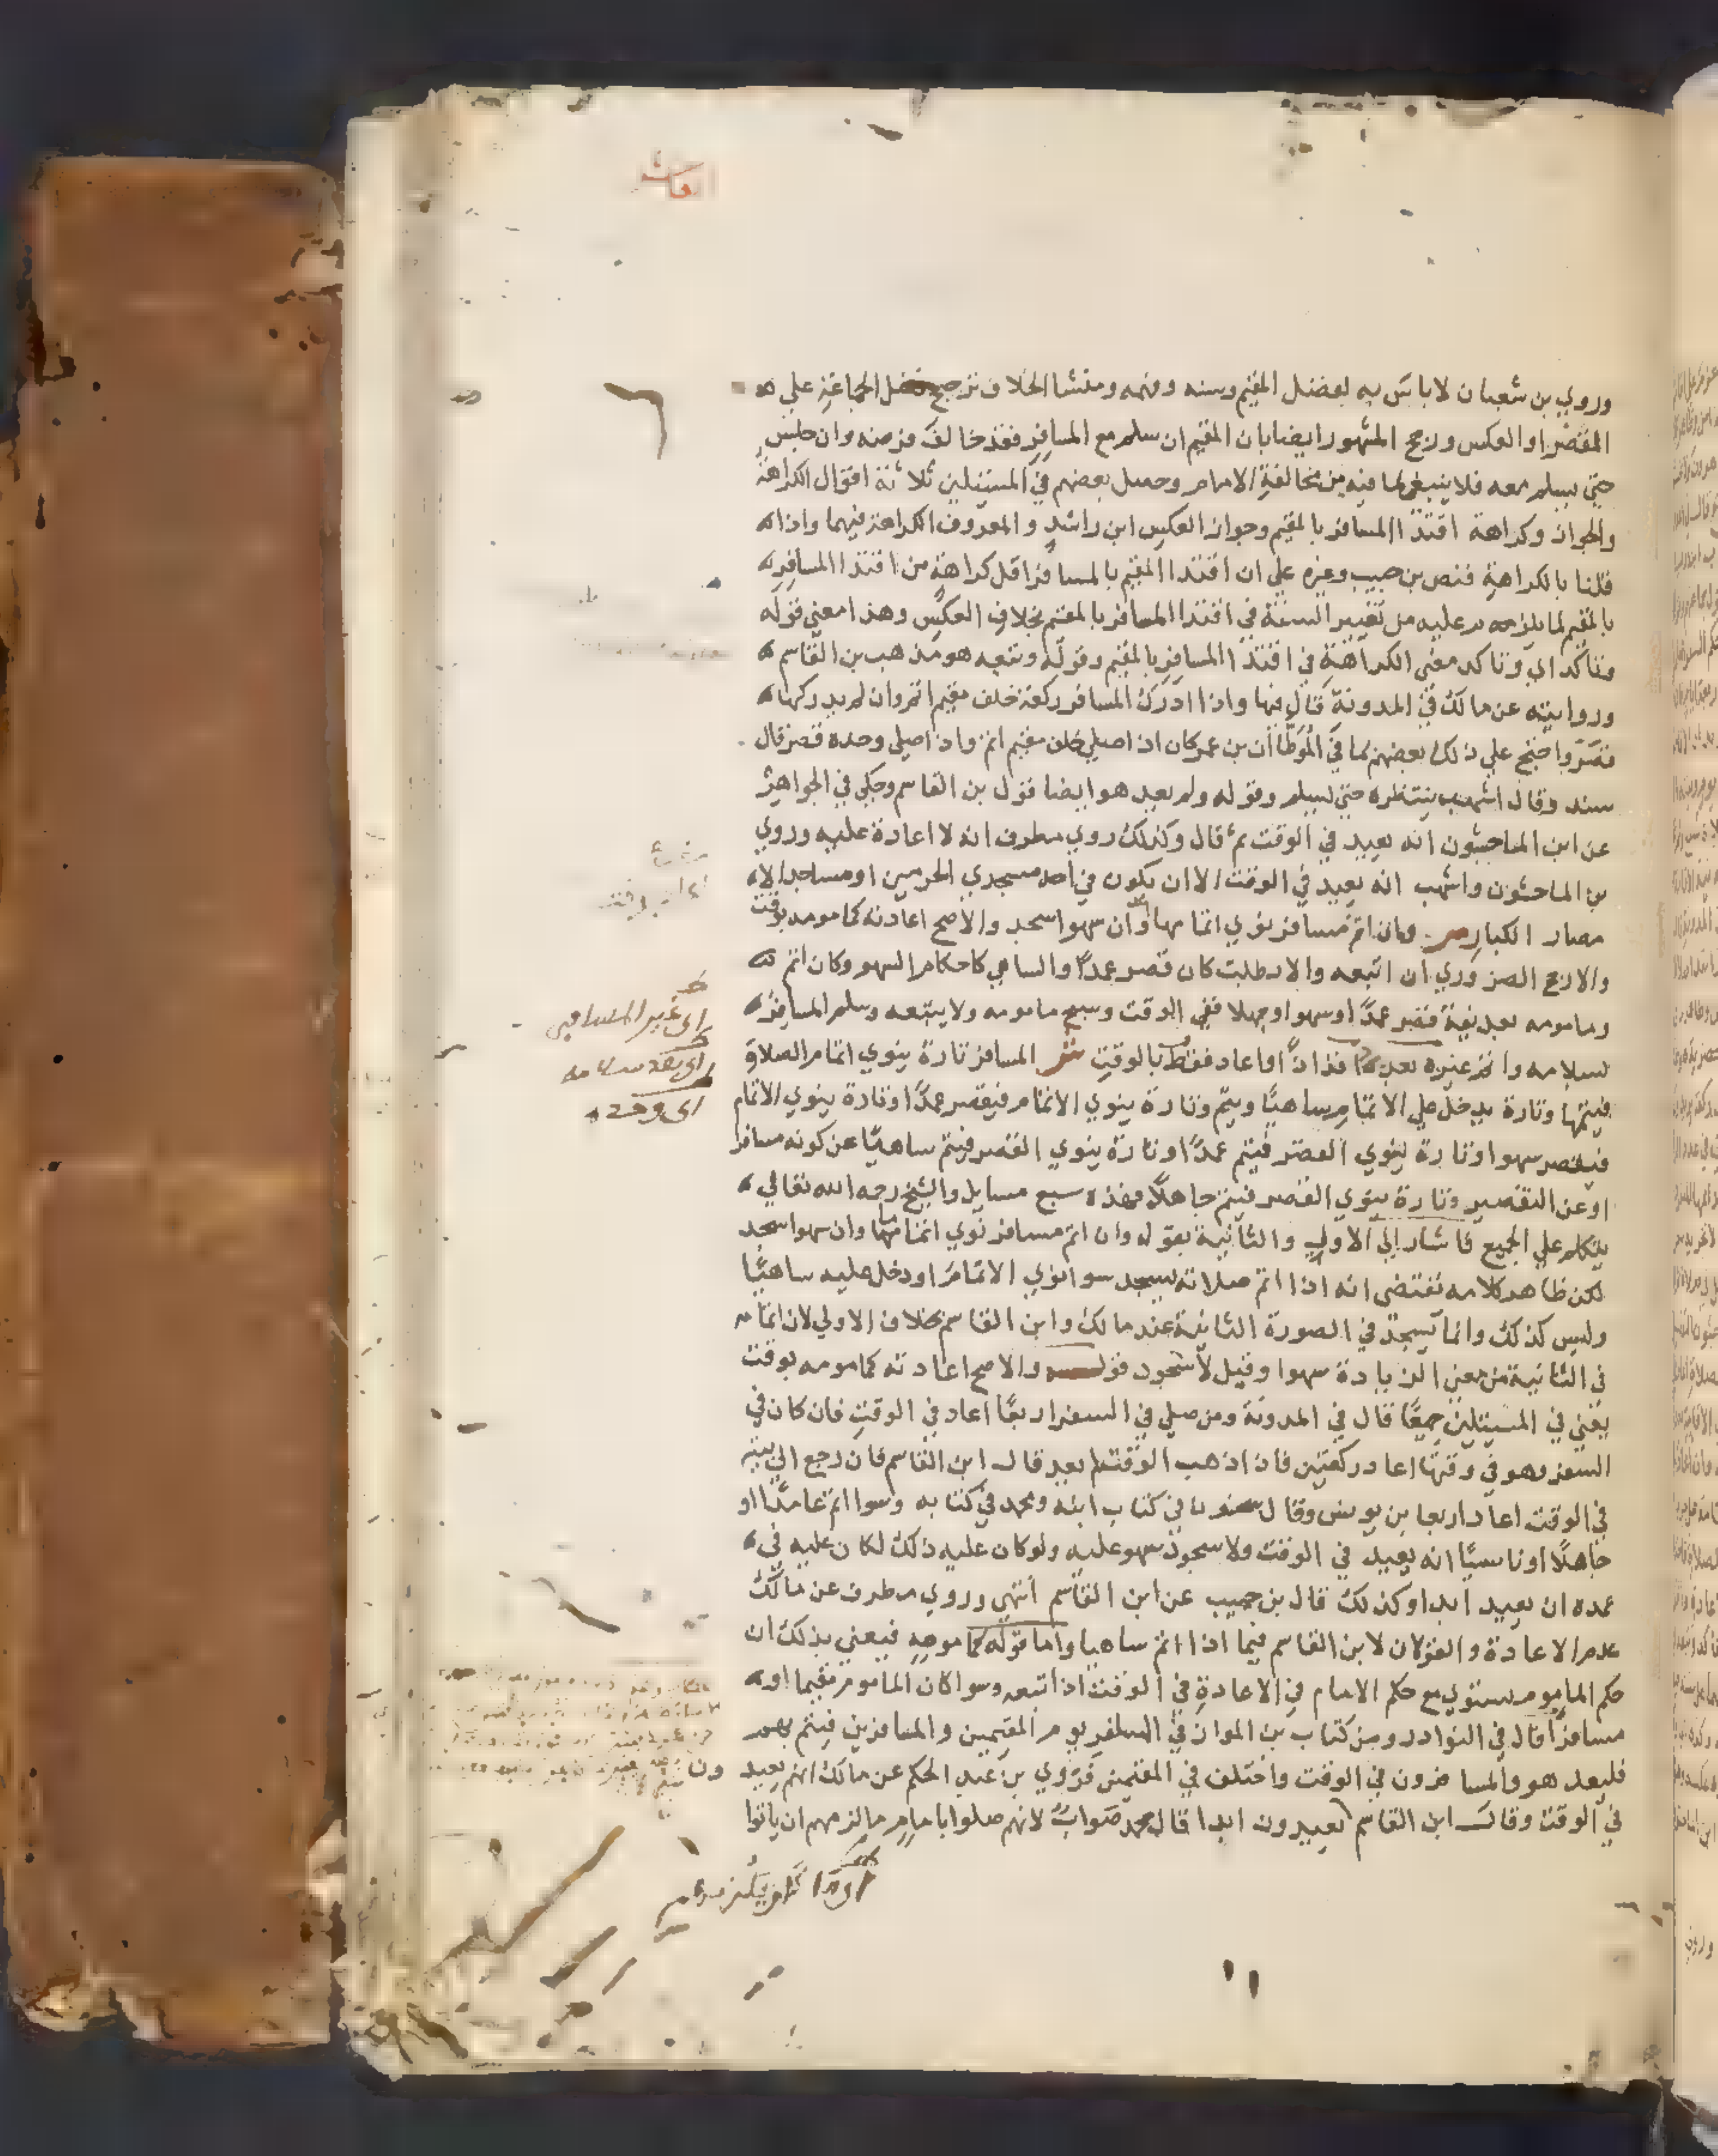 وروي بن شعبان لا باس به لفضل المقيم وسنه وفهمه ومنشا الخلاف ترجيح فضل الجماعة علي
القصر او العكس ورجح المشهور ايضا بان المقيم ان سلم مع المسافر فقد خالف فرضه وان جلس
حتي يسلم معه فلا ينبغي لما فيه من مخالفة الامام وحصل بعضهم في المسئلتين ثلاثة اقوال الكراهة
والجواز وكراهة اقتدا المسافر بالمقيم وجواز العكس ابن راشد والمعروف الكراهة فيهما واذا
قلنا بالكراهة فنص بن حبيب وغيره علي ان اقتدا المقيم بالمسافر اقل كراهة من اقتدا المسافر
بالمقيم لما يلزمه عليه من تغيير السنة في اقتدا المسافر بالمقيم بخلاف العكس وهذا معني قوله
وتاكد اي وتاكد معني الكراهة في اقتدا المسافر بالمقيم وقوله وتبعه هو مذهب بن القاسم
وروايته عن مالك في المدونة قال فيها واذا ادرك المسافر ركعة خلف مقيم اتم وان لم يدركها
قصر واحتج علي ذلك بعضهم لما في الموطا ان بن عمر كان اذا صلي خلف مقيم اتم واذا صلي وحده قصر قال
سند وقال اشهب ينتظره حتي يسلم وقوله ولم يعد هو ايضا قول بن القاسم وحكي في الجواهر
عن ابن الماجشون انه يعيد في الوقت ثم قال وكذلك روي مطرف انه لا اعادة عليه وروي
بن الماجشون واشهب انه يعيد في الوقت الا ان يكون في احد مسجدي الحرمين او مساجد الا
مصار الكبار ص وان اتم مسافر نوي اتماما وان سهوا سجد والاصح اعادته كمامومه بوقت
والارجح الضروري ان اتبعه والا بطلت كان قصر عمدا والساهي كاحكام السهو وكان اتم
ومامومه بعد نية قصر عمدا او سهوا او جهلا ففي الوقت وسبح مامومه ولا يتبعه وسلم المسافر
بسلامه واتم غيره بعده افذاذا واعاد فقط بالوقت ش المسافر تارة ينوي اتمام الصلاة
فيتمها وتارة يدخل علي الاتمام ساهيا ويتم وتارة ينوي الاتمام فيقصر عمدا وتارة ينوي الاتمام
فيقصر سهوا وتارة ينوي القصر فيتم عمدا وتارة ينوي القصر فيتم ساهيا عن كونه مسافر
او عن التقصير وتارة ينوي القصر فيتم جاهلا فهذه سبع مسايل والشيخ رحمه الله تعالي
يتكلم علي الجميع فاشار الي الاولي والثانية بقوله وان اتم مسافر نوي اتماما وان سهوا سجد
لكن ظاهر كلامه يقتضي انه اذا اتم صلاته يسجد سوا نوي الاتمام او دخل عليه ساهيا
وليس كذلك وانما يسجد في الصورة الثانية عند مالك وابن القاسم بخلاف الاولي لان اتمامه
في الثانية من معني الزيادة سهوا وقيل لا سجود قوله والاصح اعادته كمامومه بوقت
يعني في المسئلتين جميعا قال في المدونة ومن صلي في السفر اربعا اعاد في الوقت فان كان في
السفر وهو في وقتها اعاد ركعتين فان ذهب الوقت لم يعد قال ابن القاسم فان رجع الي بيته
في الوقت اعاد اربعا بن يونس وقال سحنون في كتاب ابنه ومحمد في كتابه وسوا اتم عامدا او
جاهلا او ناسيا انه يعيد في الوقت ولا سجود سهو عليه ولو كان عليه ذلك لكان عليه في
عمده ان يعيد ابدا وكذلك قال بن حبيب عن ابن القاسم انتهي وروي مطرف عن مالك
عدم الاعادة والقولان لابن القاسم فيما اذا اتم ساهيا واما قوله كمامومه فيعني بذلك ان
حكم الماموم يستوي مع حكم الامام في الاعادة في الوقت اذا اتبعه وسوا كان الماموم مقيما او
مسافرا قال في النوادر ومن كتاب بن المواز في المسافر يوم المقيمين والمسافرين فيتم بهم
فليعد هو والمسافرون في الوقت واختلف في المقيمين فروي بن عبد الحكم عن مالك انهم يعيدون
في الوقت وقال ابن القاسم يعيدون ابدا قال محمد صواب لانهم صلوا بامام ما لزمهم ان ياتوا
اي غير المسافر
اي بعد سلامه
اي وحده